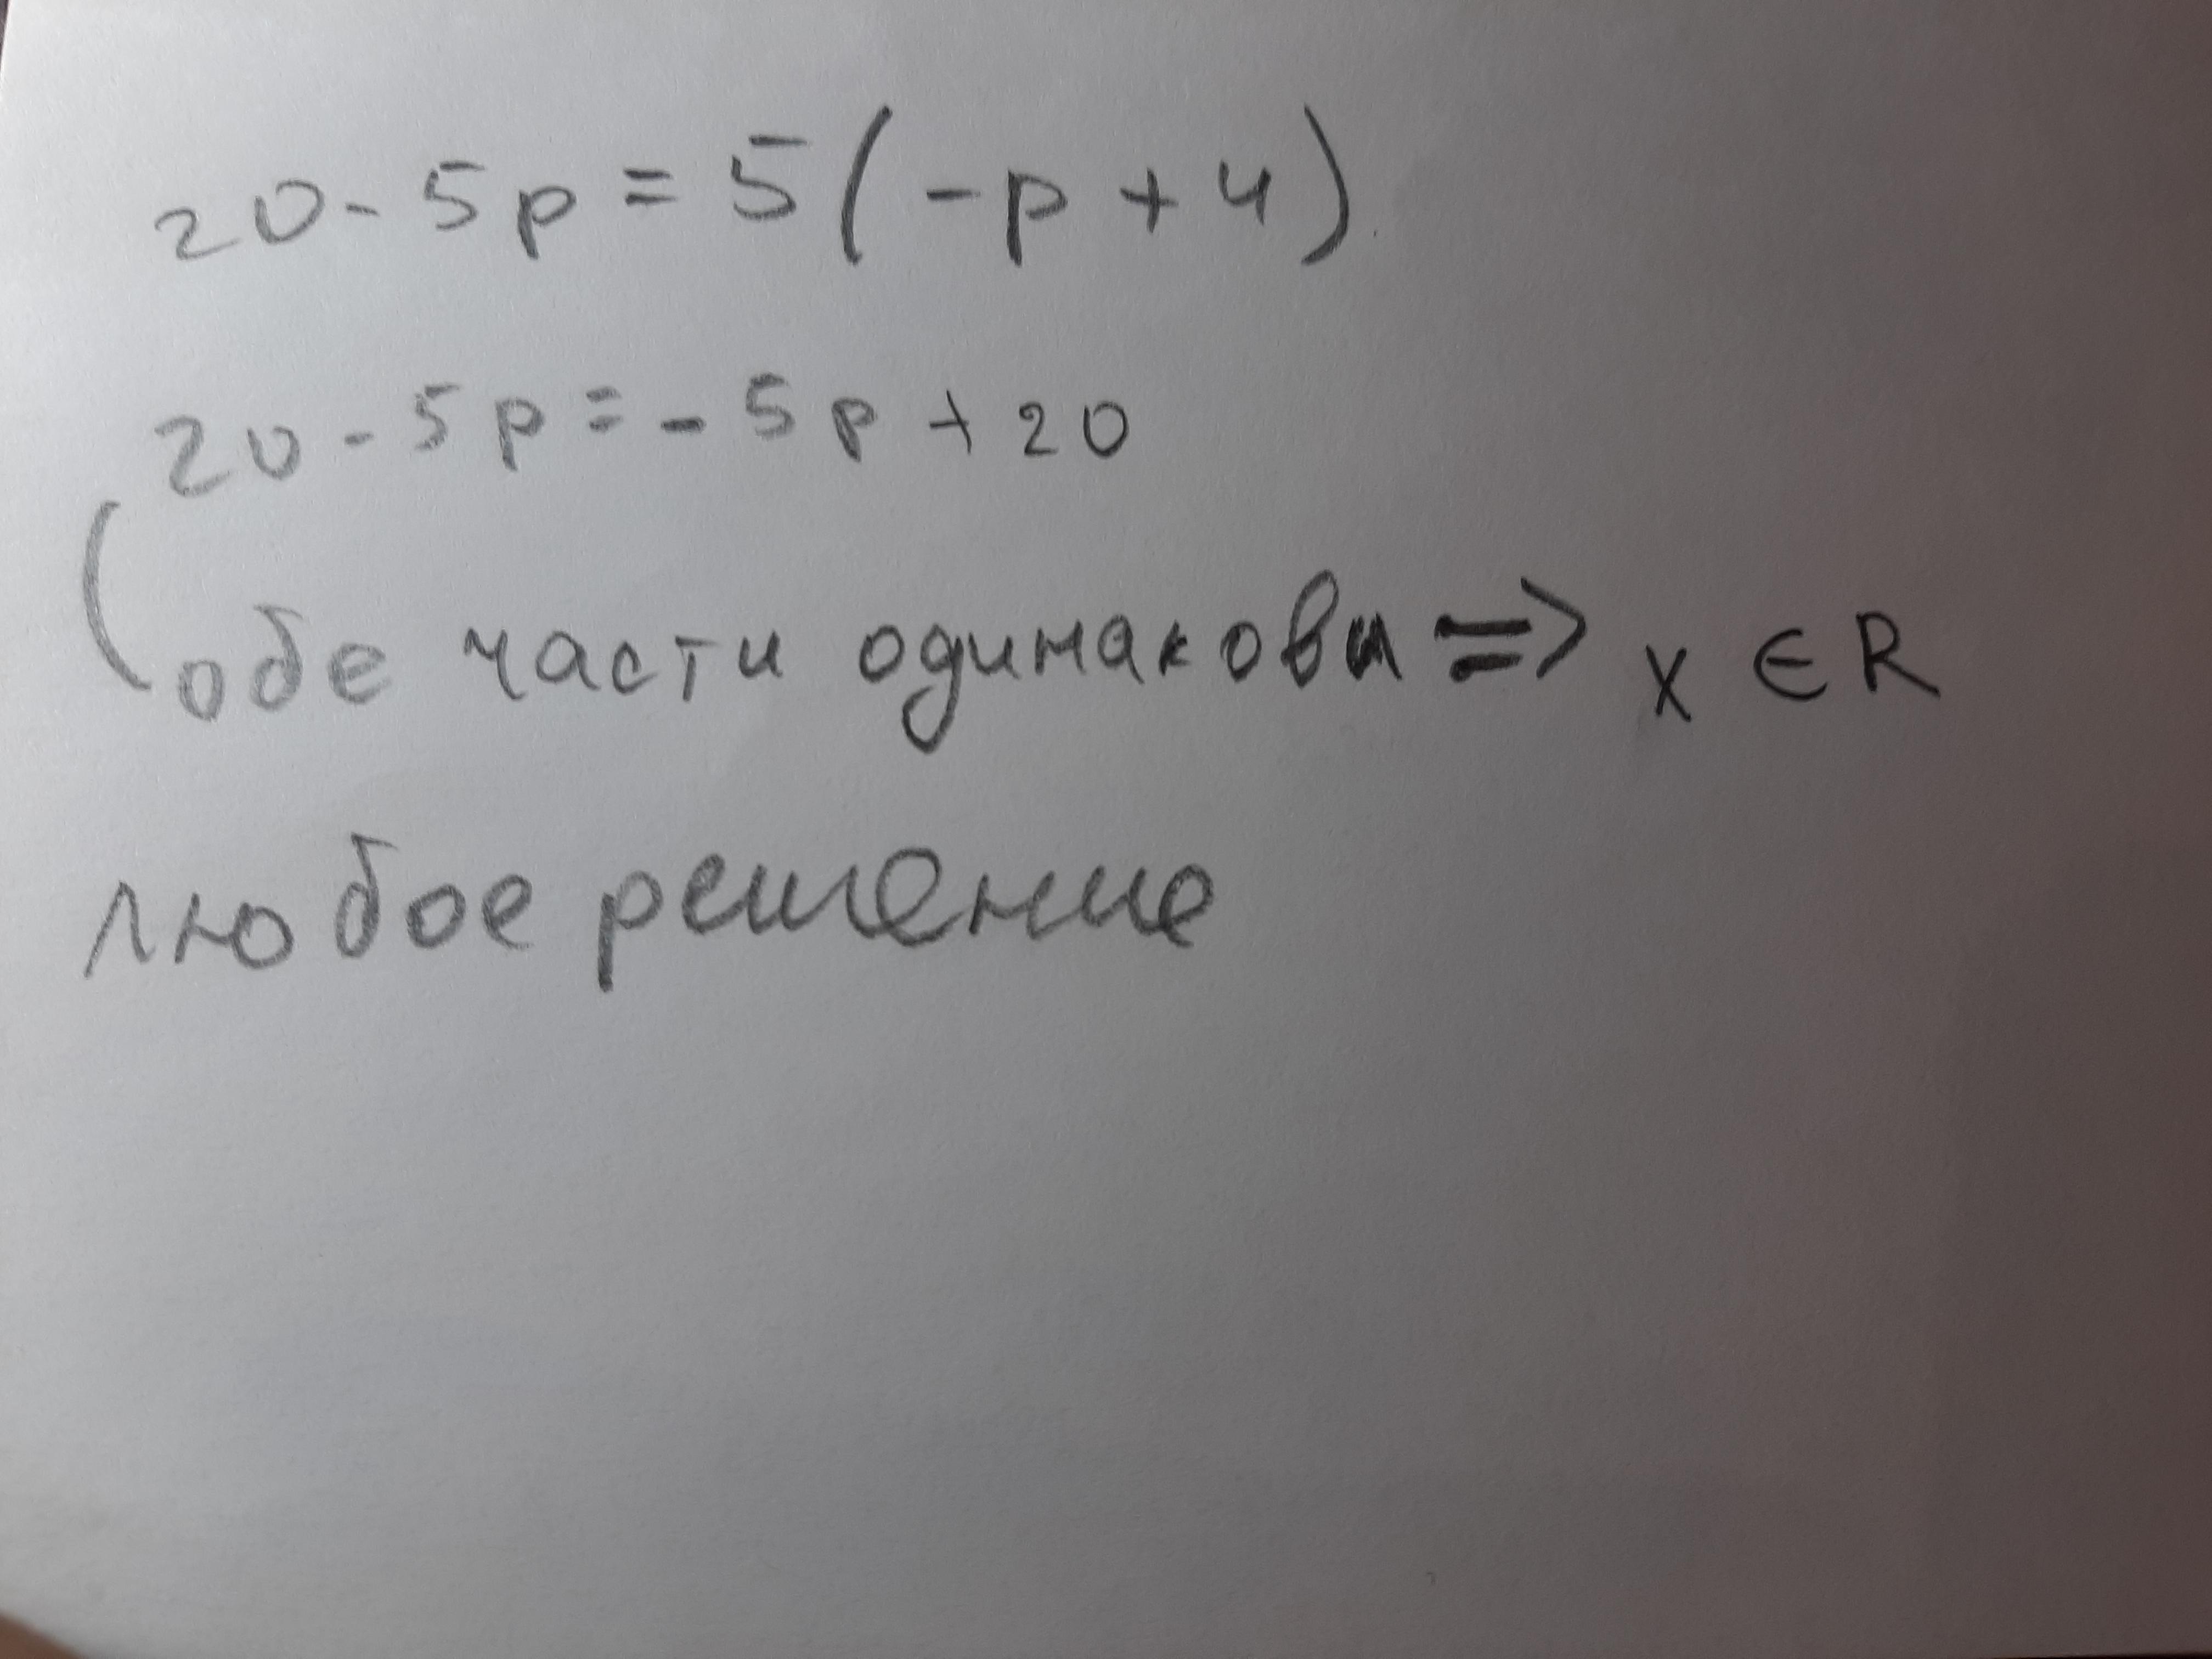 20 - 5p = 5(-p + 4)
20 - 5p = - 5p + 20
(обе части одинаковы => x ∈ R
любое решение